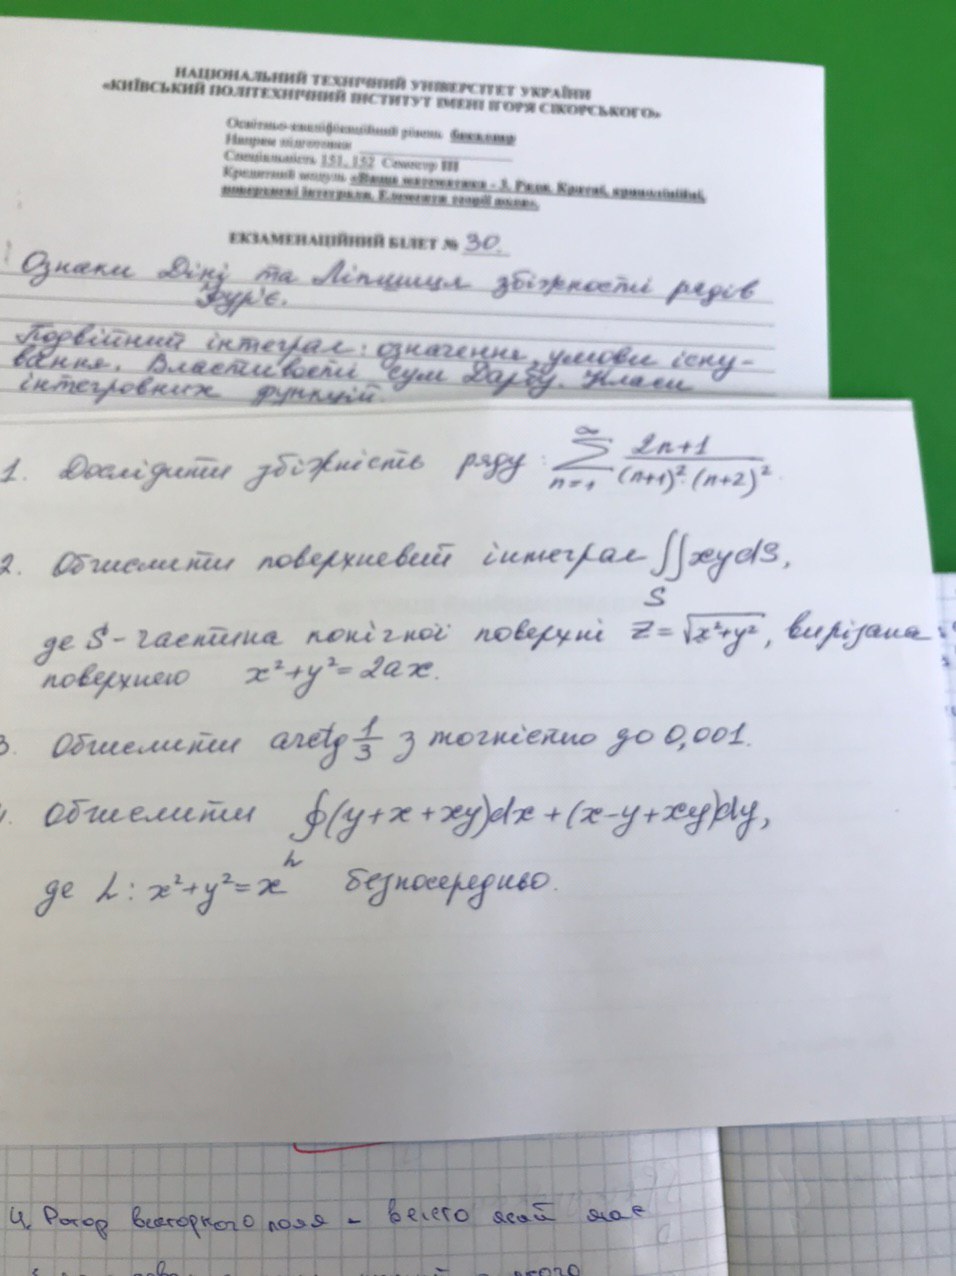 НАЦІОНАЛЬНИЙ ТЕХНІЧНИЙ УНІВЕРСІТЕТ УКРАЇНИ
«КИЇВСЬКИЙ ПОЛІТЕХНІЧНИЙ ІНСТИТУТ ІМЕНІ ІГОРЯ СІКОРСЬКОГО»
Освітньо-кваліфікаційний рівень бакалавр
Напрям підготовки
Спеціальність 151, 152 Семестр III
Кредитний модуль «Вища математика - 3. Ряди. Кратні, криволінійні,
поверхневі інтеграли. Елементи теорії поля».
ЕКЗАМЕНАЦІЙНИЙ БІЛЕТ № 30.
Ознаки Діні та Ліпшиця збіжності рядів
Фур'є.
Подвійний інтеграл: означення, умови існу-
вання. Властивості сум Дарбу. Класи
інтегровних функцій.
1. Дослідити збіжність ряду: ∑_{n=1}^{∞} (2n+1)/((n+1)²·(n+2)²)
2. Обчислити поверхневий інтеграл ∬_S xydS,
де S - частина конічної поверхні z = √(x²+y²), вирізана
поверхнею x²+y²=2ax.
3. Обчислити arctg 1/3 з точністю до 0,001.
Обчислити ∮_L (y+x+xy)dx+(x-y+xy)dy,
де L: x²+y²=x безпосередньо.
4. Ротор векторного поля - який має